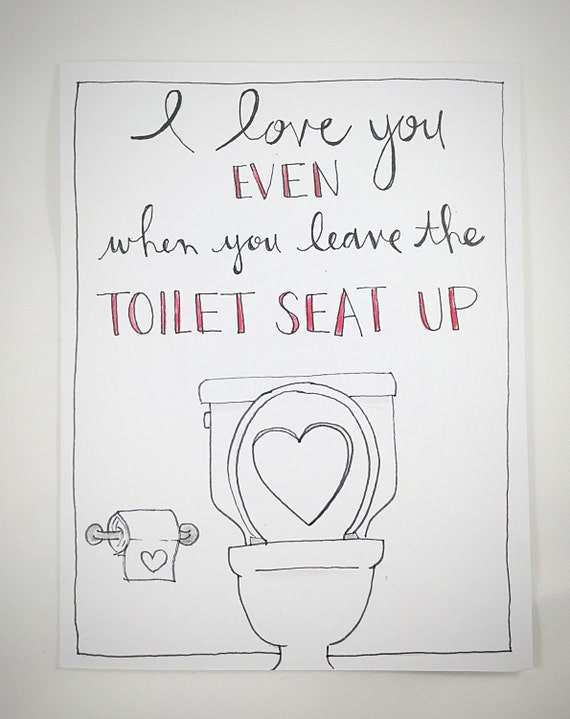 I love you
EVEN
when you leave the
TOILET SEAT UP